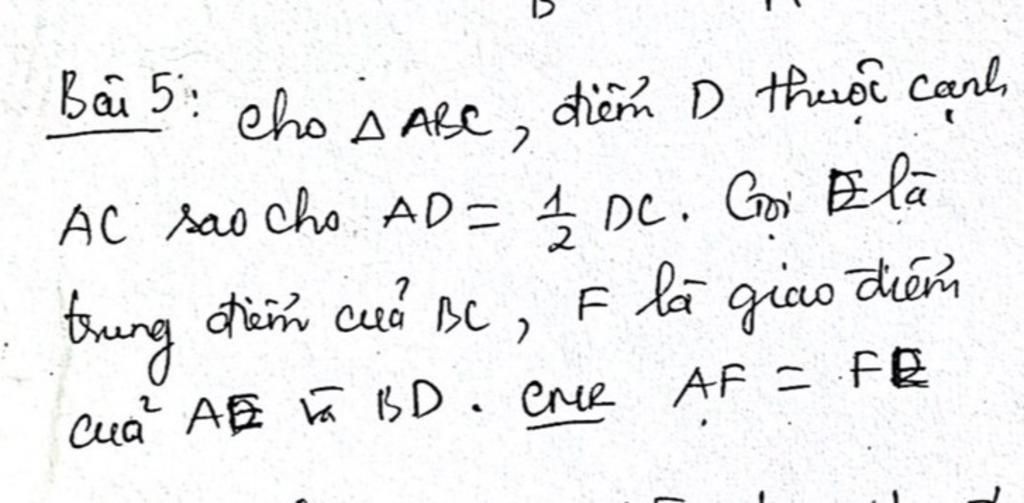 Bài 5: Cho △ ABC, điểm D thuộc cạnh
AC sao cho AD = 1/2 DC. Gọi E là
trung điểm của BC, F là giao điểm
của AE và BD. CMR AF = FE